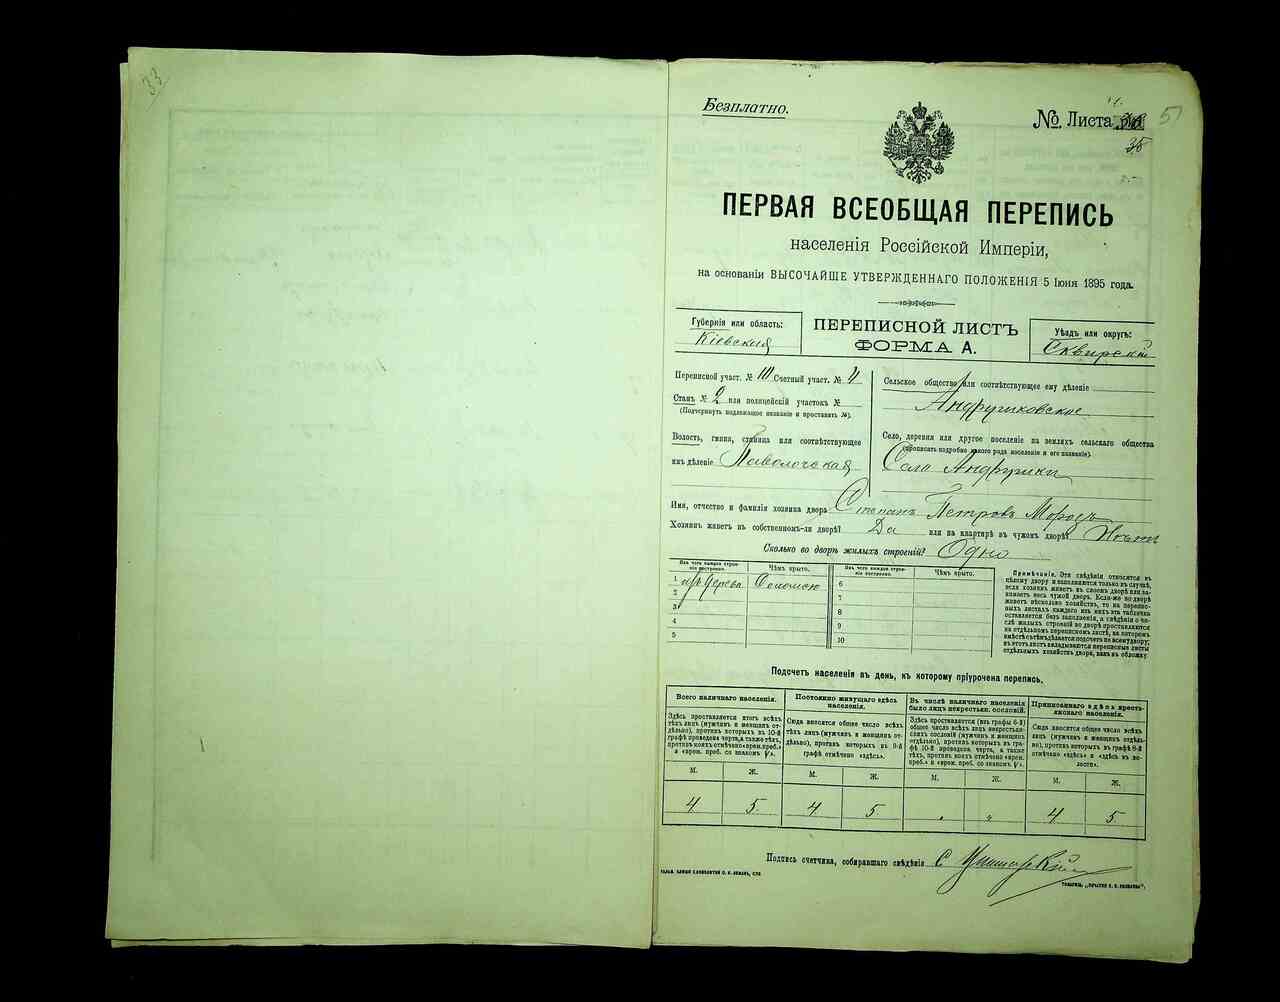 33
Безплатно.
№ Листа
35
51
ПЕРВАЯ ВСЕОБЩАЯ ПЕРЕПИСЬ
населенія Россійской Имперіи,
на основаніи ВЫСОЧАЙШЕ УТВЕРЖДЕННАГО ПОЛОЖЕНІЯ 5 Іюня 1895 года.
Губернія или область:
Кіевская
ПЕРЕПИСНОЙ ЛИСТЪ
ФОРМА А.
Уѣздъ или округъ:
Сквирскій
Переписной участ. № III Счетный участ. № 4
Станъ № 2 или полицейскій участокъ №
(Подчеркнуть надлежащее названіе и проставить №).
Волость, гмина, станица или соотвѣтствующее
имъ дѣленіе Паволочская
Сельское общество или соотвѣтствующее ему дѣленіе
Андрушковское
Село, деревня или другое поселеніе на земляхъ сельскаго общества
(прописать подробно какого рода населеніе и его названіе).
Село Андрушки
Имя, отчество и фамилія хозяина двора Степанъ Петровъ Морозъ
Хозяинъ живетъ въ собственномъ-ли дворѣ? Да или на квартирѣ въ чужомъ дворѣ?
Сколько во дворѣ жилыхъ строеній? Одно
Изъ чего каждое строеніе построено. Чѣмъ крыто. Изъ чего каждое строеніе построено. Чѣмъ крыто.
1 изъ дерева Соломою 6
2 7
3 8
4 9
5 10
Примѣчаніе. Эти свѣдѣнія относятся къ
цѣлому двору и заполняются только въ случаѣ,
если хозяинъ живетъ въ своемъ дворѣ или за-
нимаетъ весь чужой дворъ. Если-же во дворѣ
живетъ нѣсколько хозяйствъ, то на перепис-
ныхъ листахъ каждаго изъ нихъ эта табличка
оставляется безъ заполненія, а свѣдѣнія о чи-
слѣ жилыхъ строеній во дворѣ проставляются
на отдѣльномъ переписномъ листѣ, на которомъ
вмѣстѣ съ тѣмъ дѣлается подсчетъ по всему двору;
въ этотъ листъ вкладываются переписные листы
отдѣльныхъ хозяйствъ двора, какъ въ обложку.
Подсчетъ населенія въ день, къ которому пріурочена перепись.
Всего наличнаго населенія.
Здѣсь проставляется итогъ всѣхъ
тѣхъ лицъ (мужчинъ и женщинъ от-
дѣльно), противъ которыхъ въ 10-й
графѣ проведена черта, а также тѣхъ,
противъ коихъ отмѣчено «врем. преб.»
и «времн. преб. со знакомъ V».
Постоянно живущаго здѣсь
населенія.
Сюда вносится общее число всѣхъ
тѣхъ лицъ (мужчинъ и женщинъ от-
дѣльно), противъ которыхъ въ 9-й
графѣ отмѣчено «здѣсь».
Въ числѣ наличнаго населенія
было лицъ некрестьян. сословій.
Здѣсь проставляется (изъ графы 6-й)
общее число всѣхъ лицъ некрестьян-
скихъ сословій (мужчинъ и женщинъ
отдѣльно), противъ которыхъ въ гра-
фѣ 10-й проведена черта, а также
тѣхъ, противъ коихъ отмѣчено «врем.
преб.» и «времн. преб. со знакомъ V».
Приписаннаго здѣсь кресть-
янскаго населенія.
Сюда вносится общее число всѣхъ
лицъ (мужчинъ и женщинъ отдѣль-
но), противъ которыхъ въ графѣ 8-й
отмѣчено «здѣсь» и «здѣсь въ во-
лости».
М. Ж. М. Ж. М. Ж. М. Ж.
4 5 4 5 „ „ 4 5
Подпись счетчика, собиравшаго свѣдѣнія С.